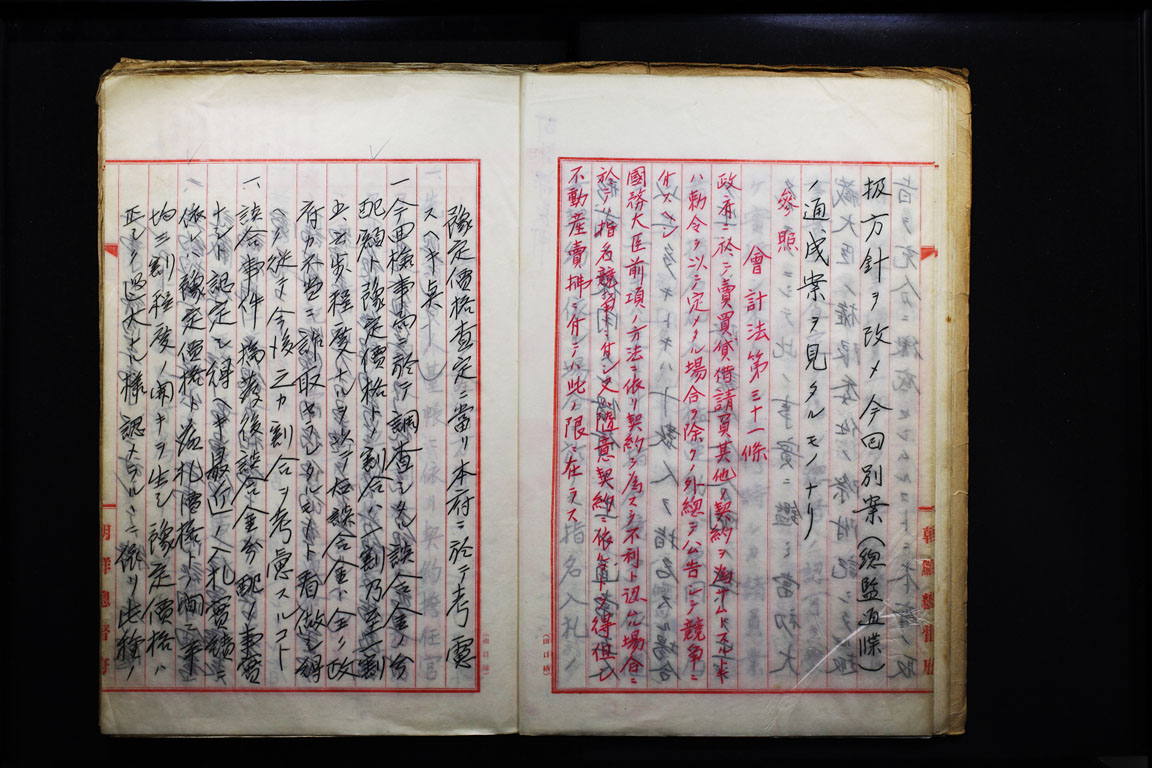 扱方針ヲ改メ今回別案(總監通牒)
ノ通成案ヲ見タルモノナリ
參照
會計法第三十一條
政府ニ於テ賣買貸借請負其他ノ契約ヲ為サムトスルトキ
ハ勅令ヲ以テ定メタル場合ヲ除クノ外總テ公告シテ競爭ニ
付スベシ
國務大臣前項ノ方法ニ依リ契約ヲ為スヲ不利ト認ムル場合ニ
於テハ指名競爭ニ付シ又ハ隨意契約ニ依ルコトヲ得但シ
不動産賣拂ニ付テハ此ノ限ニ在ラス
豫定價格査定ニ當リ本府ニ於テ考慮
スヘキ點
一、今回檢事局ニ於テ調査シタル談合金ノ分
配額ト豫定價格トノ割合ハ 割乃至一割
五分程度ナルヲ以テ右談合金ハ全ク政
府カ不当ニ詐取セラレタルモノト看做シ得
ヘク從テ今後之カ割合ヲ考慮スルコト
一、談合事件摘發後談合金分配ノ事實
ナシト認定シ得ヘキ最近ノ入札實績ニ
依レハ豫定價格ト落札價格トノ間ニ平
均三割程度ノ開キヲ生シ豫定價格ハ
正シク過大ナル様認メラルルニ依リ此ノ
朝鮮總督府
朝鮮總督府